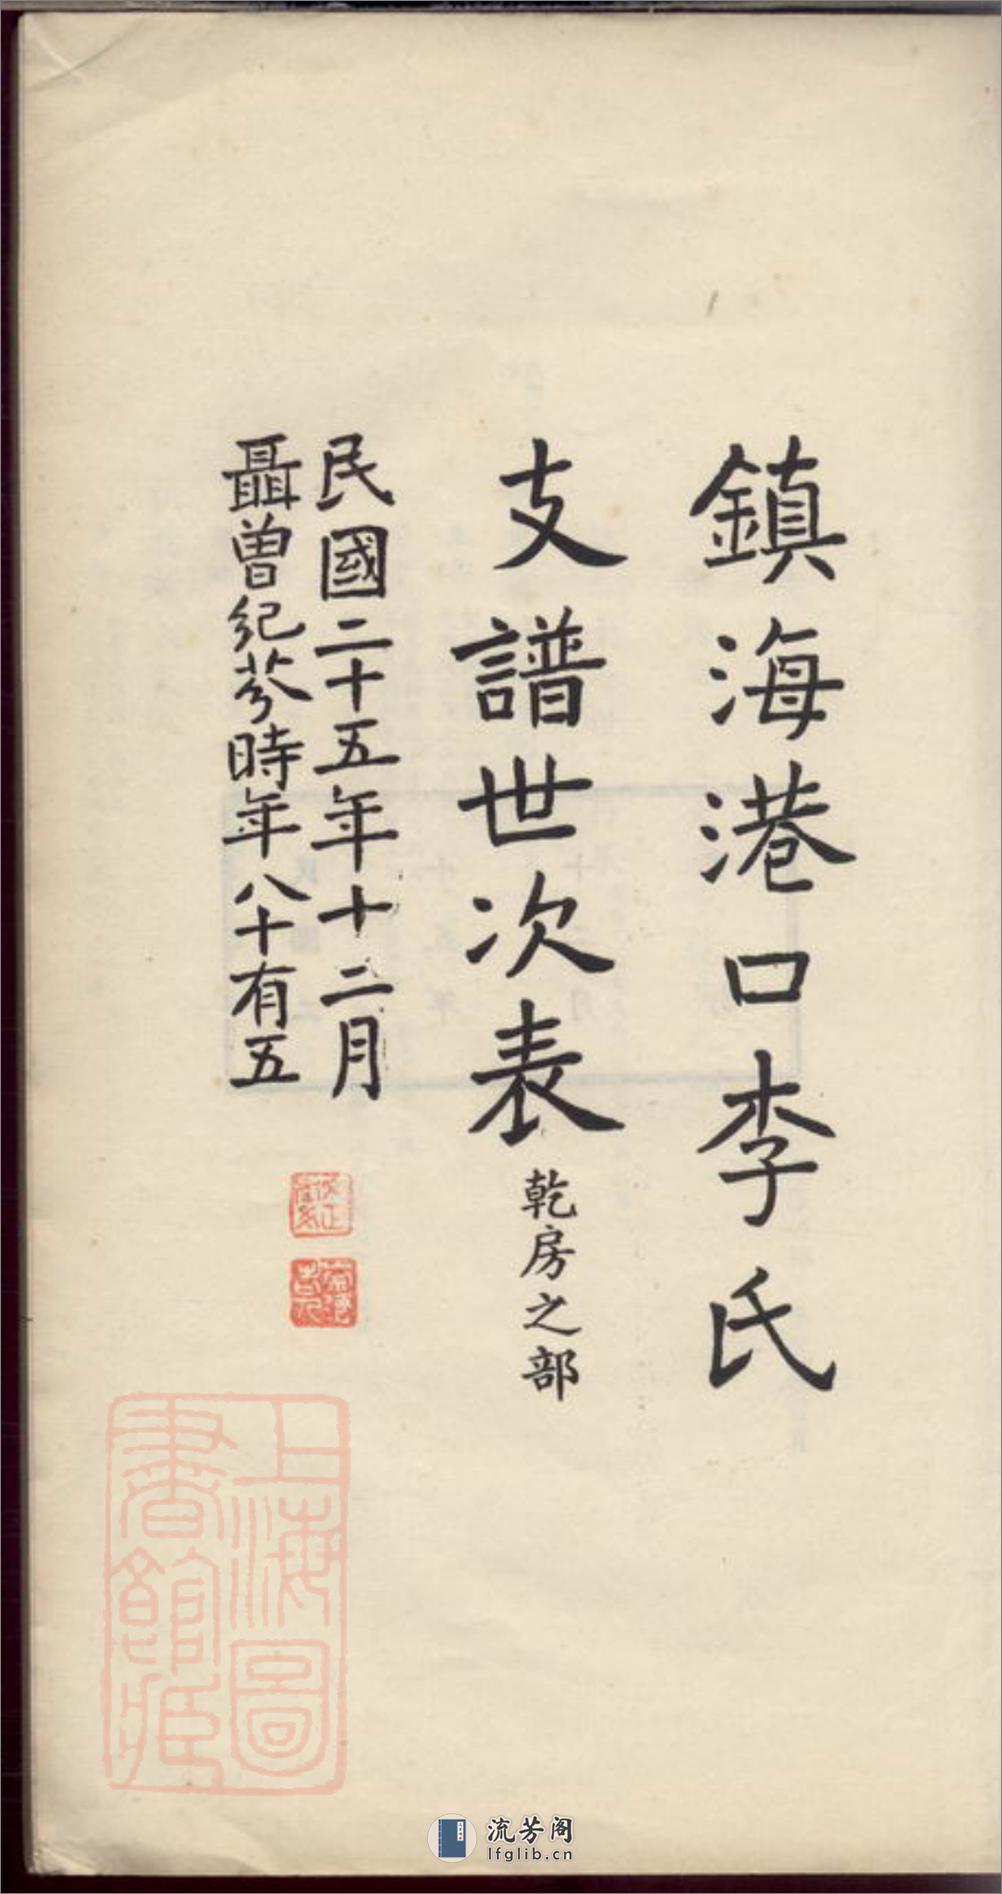 鎮海港口李氏
支譜世次表 乾房之部
民國二十五年十二月
聶曾紀芬時年八十有五
上海圖
書館藏
流芳阁
lfglib.cn